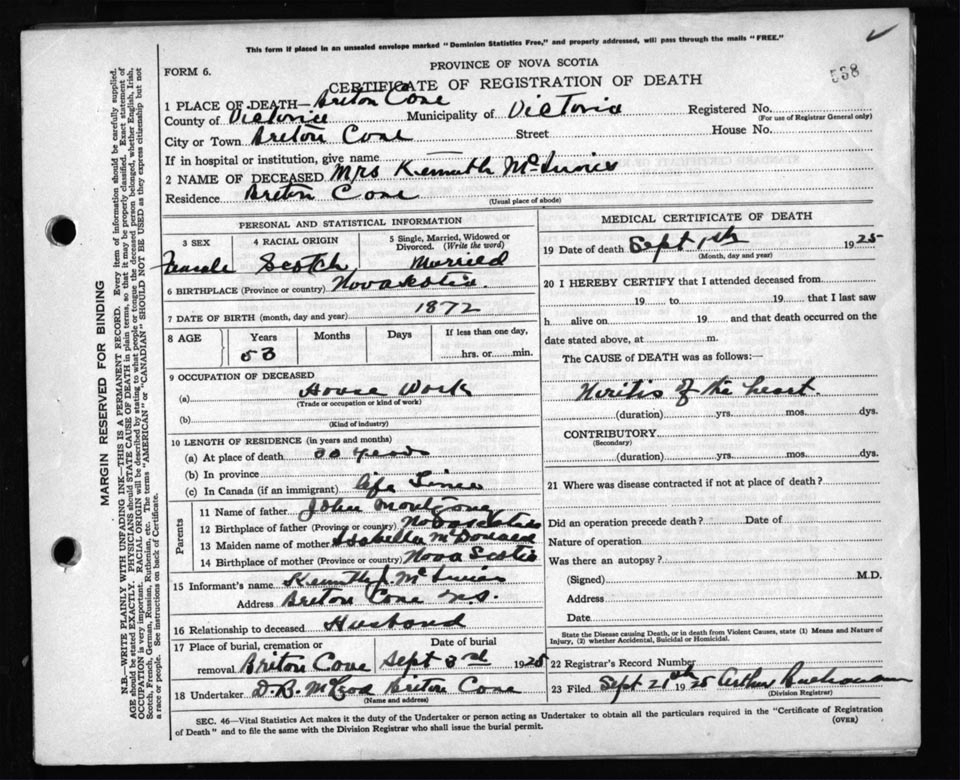 This form if placed in an unsealed envelope marked "Dominion Statistics Free," and properly addressed, will pass through the mails "FREE."
PROVINCE OF NOVA SCOTIA
FORM 6.
538
CERTIFICATE OF REGISTRATION OF DEATH
1 PLACE OF DEATH— Briton Cove
County of Victoria Municipality of Victoria Registered No.
(For use of Registrar General only)
City or Town Breton Cove Street House No.
If in hospital or institution, give name
2 NAME OF DECEASED Mrs Kenneth McInnis
Residence Breton Cove
(Usual place of abode)
PERSONAL AND STATISTICAL INFORMATION
3 SEX 4 RACIAL ORIGIN 5 Single, Married, Widowed or Divorced. (Write the word)
Female Scotch Married
6 BIRTHPLACE (Province or country) Nova Scotia
7 DATE OF BIRTH (month, day and year) 1872
8 AGE Years Months Days If less than one day,
53 hrs. or min.
9 OCCUPATION OF DECEASED
(a) House Work
(Trade or occupation or kind of work)
(b)
(Kind of industry)
10 LENGTH OF RESIDENCE (in years and months)
(a) At place of death years
(b) In province
(c) In Canada (if an immigrant) life Time
Parents
11 Name of father John
12 Birthplace of father (Province or country) Nova Scotia
13 Maiden name of mother Isabella McDonald
14 Birthplace of mother (Province or country) Nova Scotia
15 Informant's name Kenneth J. McInnis
Address Briton Cove N.S.
16 Relationship to deceased Husband
17 Place of burial, cremation or removal Date of burial
Briton Cove Sept 3rd 1925
18 Undertaker D.B. McLeod Briton Cove
(Name and address)
MEDICAL CERTIFICATE OF DEATH
19 Date of death Sept 1st 1925
(Month, day and year)
20 I HEREBY CERTIFY that I attended deceased from
19 to 19 that I last saw
h alive on 19 and that death occurred on the
date stated above, at m.
The CAUSE of DEATH was as follows:—
Neritis of the heart.
(duration) yrs. mos. dys.
CONTRIBUTORY
(Secondary)
(duration) yrs. mos. dys.
21 Where was disease contracted if not at place of death?
Did an operation precede death? Date of
Nature of operation
Was there an autopsy?
(Signed) M.D.
Address
Date
State the Disease causing Death, or in death from Violent Causes, state (1) Means and Nature of Injury, (2) whether Accidental, Suicidal or Homicidal.
22 Registrar's Record Number
23 Filed Sept 21st 1925 Arthur Buchanan
(Division Registrar)
SEC. 46—Vital Statistics Act makes it the duty of the Undertaker or person acting as Undertaker to obtain all the particulars required in the "Certificate of Registration
of Death" and to file the same with the Division Registrar who shall issue the burial permit.
(OVER)
MARGIN RESERVED FOR BINDING
N.B.—WRITE PLAINLY WITH UNFADING INK—THIS IS A PERMANENT RECORD. Every item of information should be carefully supplied.
AGE should be stated EXACTLY. PHYSICIANS should STATE CAUSE OF DEATH in plain terms, so that it may be properly classified. Exact statement of
OCCUPATION is very important. RACIAL ORIGIN will be described by stating to what people or tongue the deceased person belonged, whether English, Irish,
Scotch, French, German, Russian, Ruthenian, etc. The terms "AMERICAN" or "CANADIAN" SHOULD NOT BE USED as they express citizenship but not
a race or people. See instructions on back of Certificate.